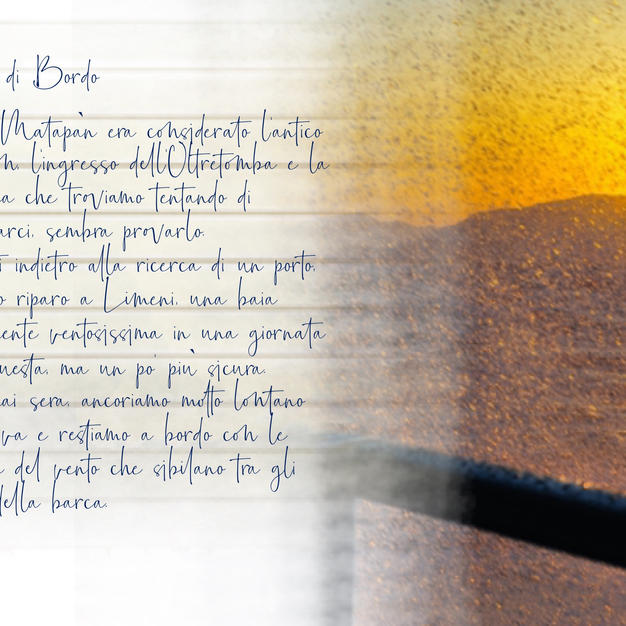 di Bordo
Matapàn era considerato l'antico
l'ingresso dell'Oltretomba e la
che troviamo tentando di
sembra provarlo.
indietro alla ricerca di un porto,
riparo a Limeni, una baia
ventosissima in una giornata
ma un po' più sicura.
sera, ancoriamo molto lontano
e restiamo a bordo con le
del vento che sibilano tra gli
della barca.